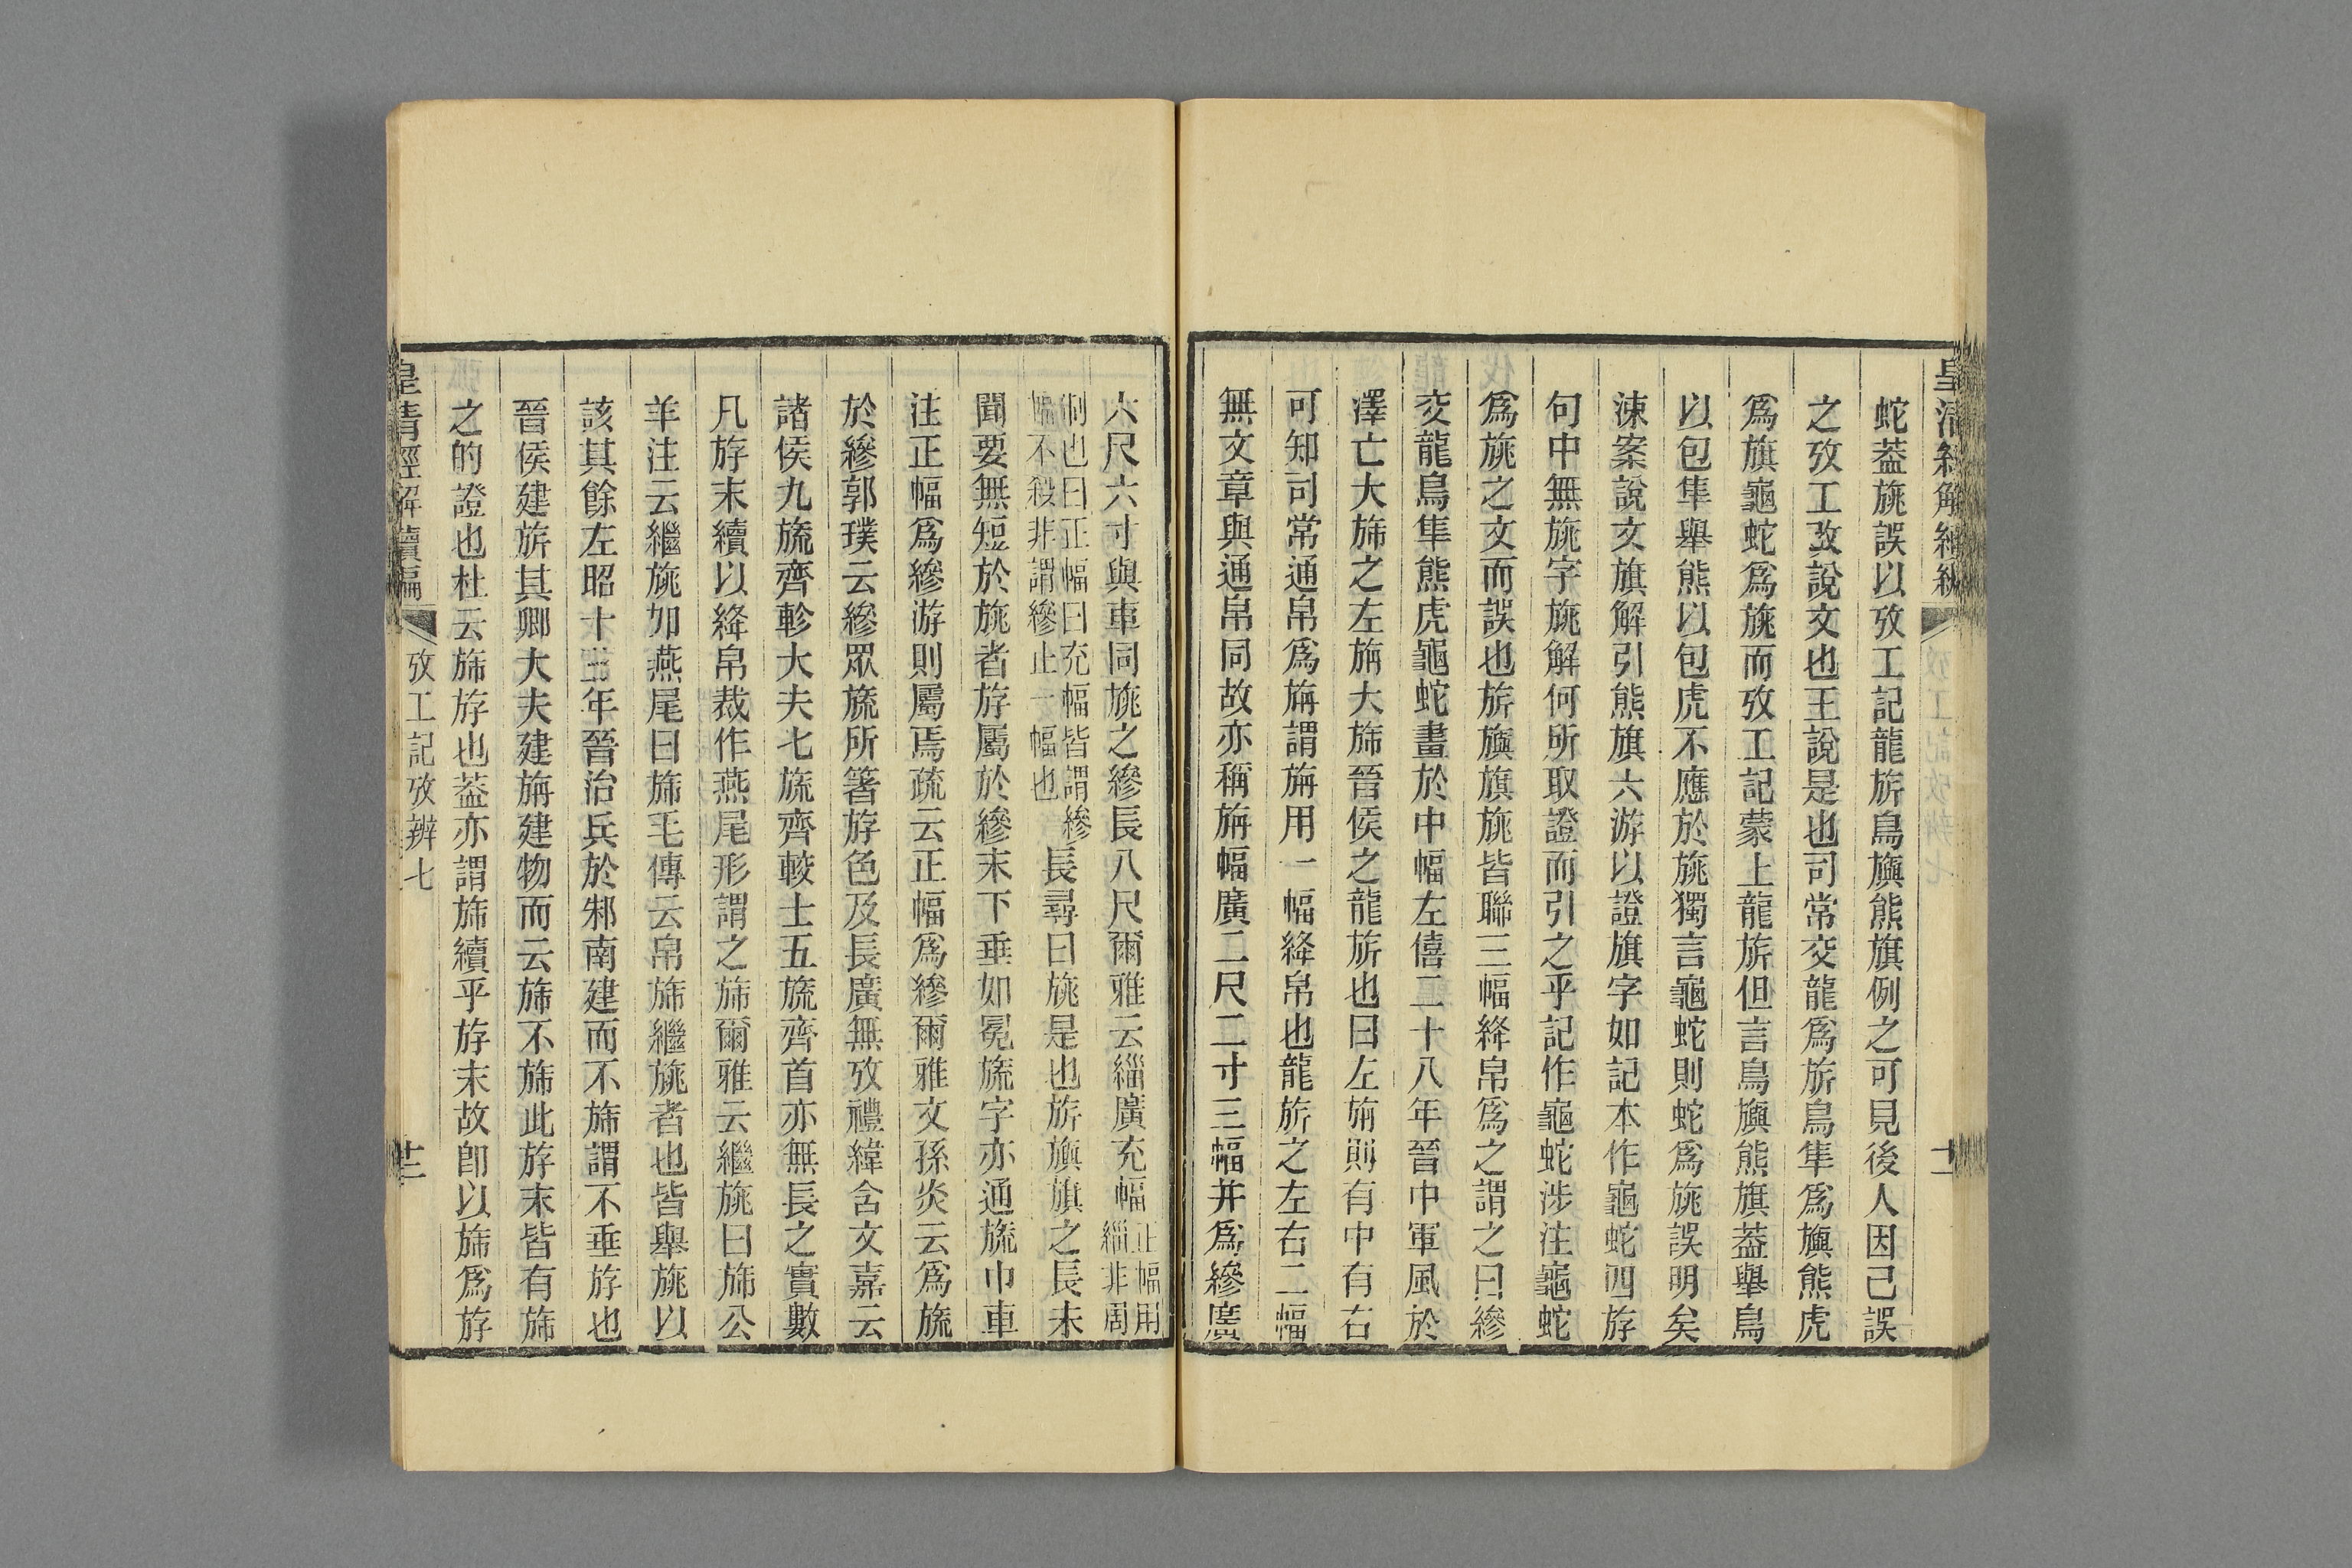 皇清經解續編
蛇葢旐誤以攷工記龍旂鳥旟熊旗例之可見後人因己誤
之攷工攺說文也王說是也司常交龍爲旂鳥隼爲旟熊虎
爲旗龜蛇爲旐而攷工記蒙上龍旂但言鳥旟熊旗葢舉鳥
以包隼舉熊以包虎不應於旐獨言龜蛇則蛇爲旐誤明矣
涑案說文旗解引熊旗六游以證旗字如記本作龜蛇四斿
句中無旐字旐解何所取證而引之乎記作龜蛇涉注龜蛇
爲旐之文而誤也旂旟旗旐皆聯三幅絳帛爲之謂之曰縿
交龍鳥隼熊虎龜蛇畫於中幅左僖二十八年晉中軍風於
澤亡大旆之左旃大旆晉侯之龍旂也曰左旃則有中有右
可知司常通帛爲旃謂旃用一幅絳帛也龍旂之左右二幅
無文章與通帛同故亦稱旃幅廣二尺二寸三幅并爲縿廣
六尺六寸與車同旐之縿長八尺爾雅云緇廣充幅正幅用緇非周
制也曰正幅曰充幅皆謂縿幅不殺非謂縿止一幅也長尋曰旐是也旂旟旗之長未
聞要無短於旐者斿屬於縿末下垂如冕旒字亦通旒巾車
注正幅爲縿游則屬焉疏云正幅爲縿爾雅文孫炎云爲旒
於縿郭璞云縿眾旒所箸斿色及長廣無攷禮緯含文嘉云
諸侯九旒齊軫大夫七旒齊較士五旒齊首亦無長之實數
凡斿末續以絳帛裁作燕尾形謂之旆爾雅云繼旐曰旆公
羊注云繼旐如燕尾曰旆毛傳云帛旆繼旐者也皆舉旐以
該其餘左昭十三年晉治兵於邾南建而不旆謂不垂斿也
晉侯建旂其卿大夫建旃建物而云旆不旆此斿末皆有旆
之的證也杜云旆斿也葢亦謂旆續乎斿末故卽以旆爲斿
皇清經解續編 攷工記攷辨七 十二